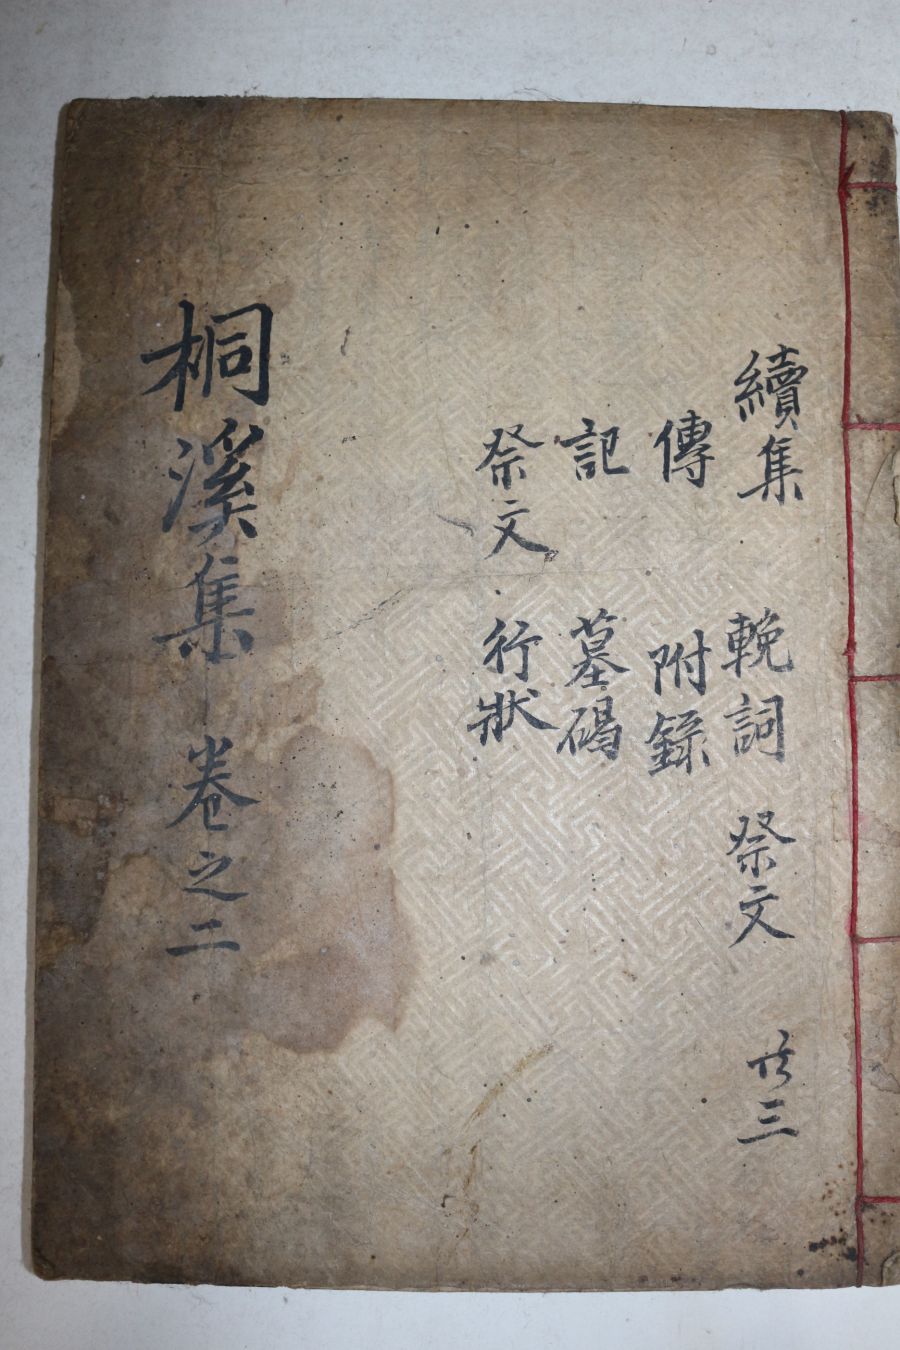 續集 輓詞 祭文 共三
傳 附錄
記 墓碣
祭文 行狀
桐溪集 卷之二